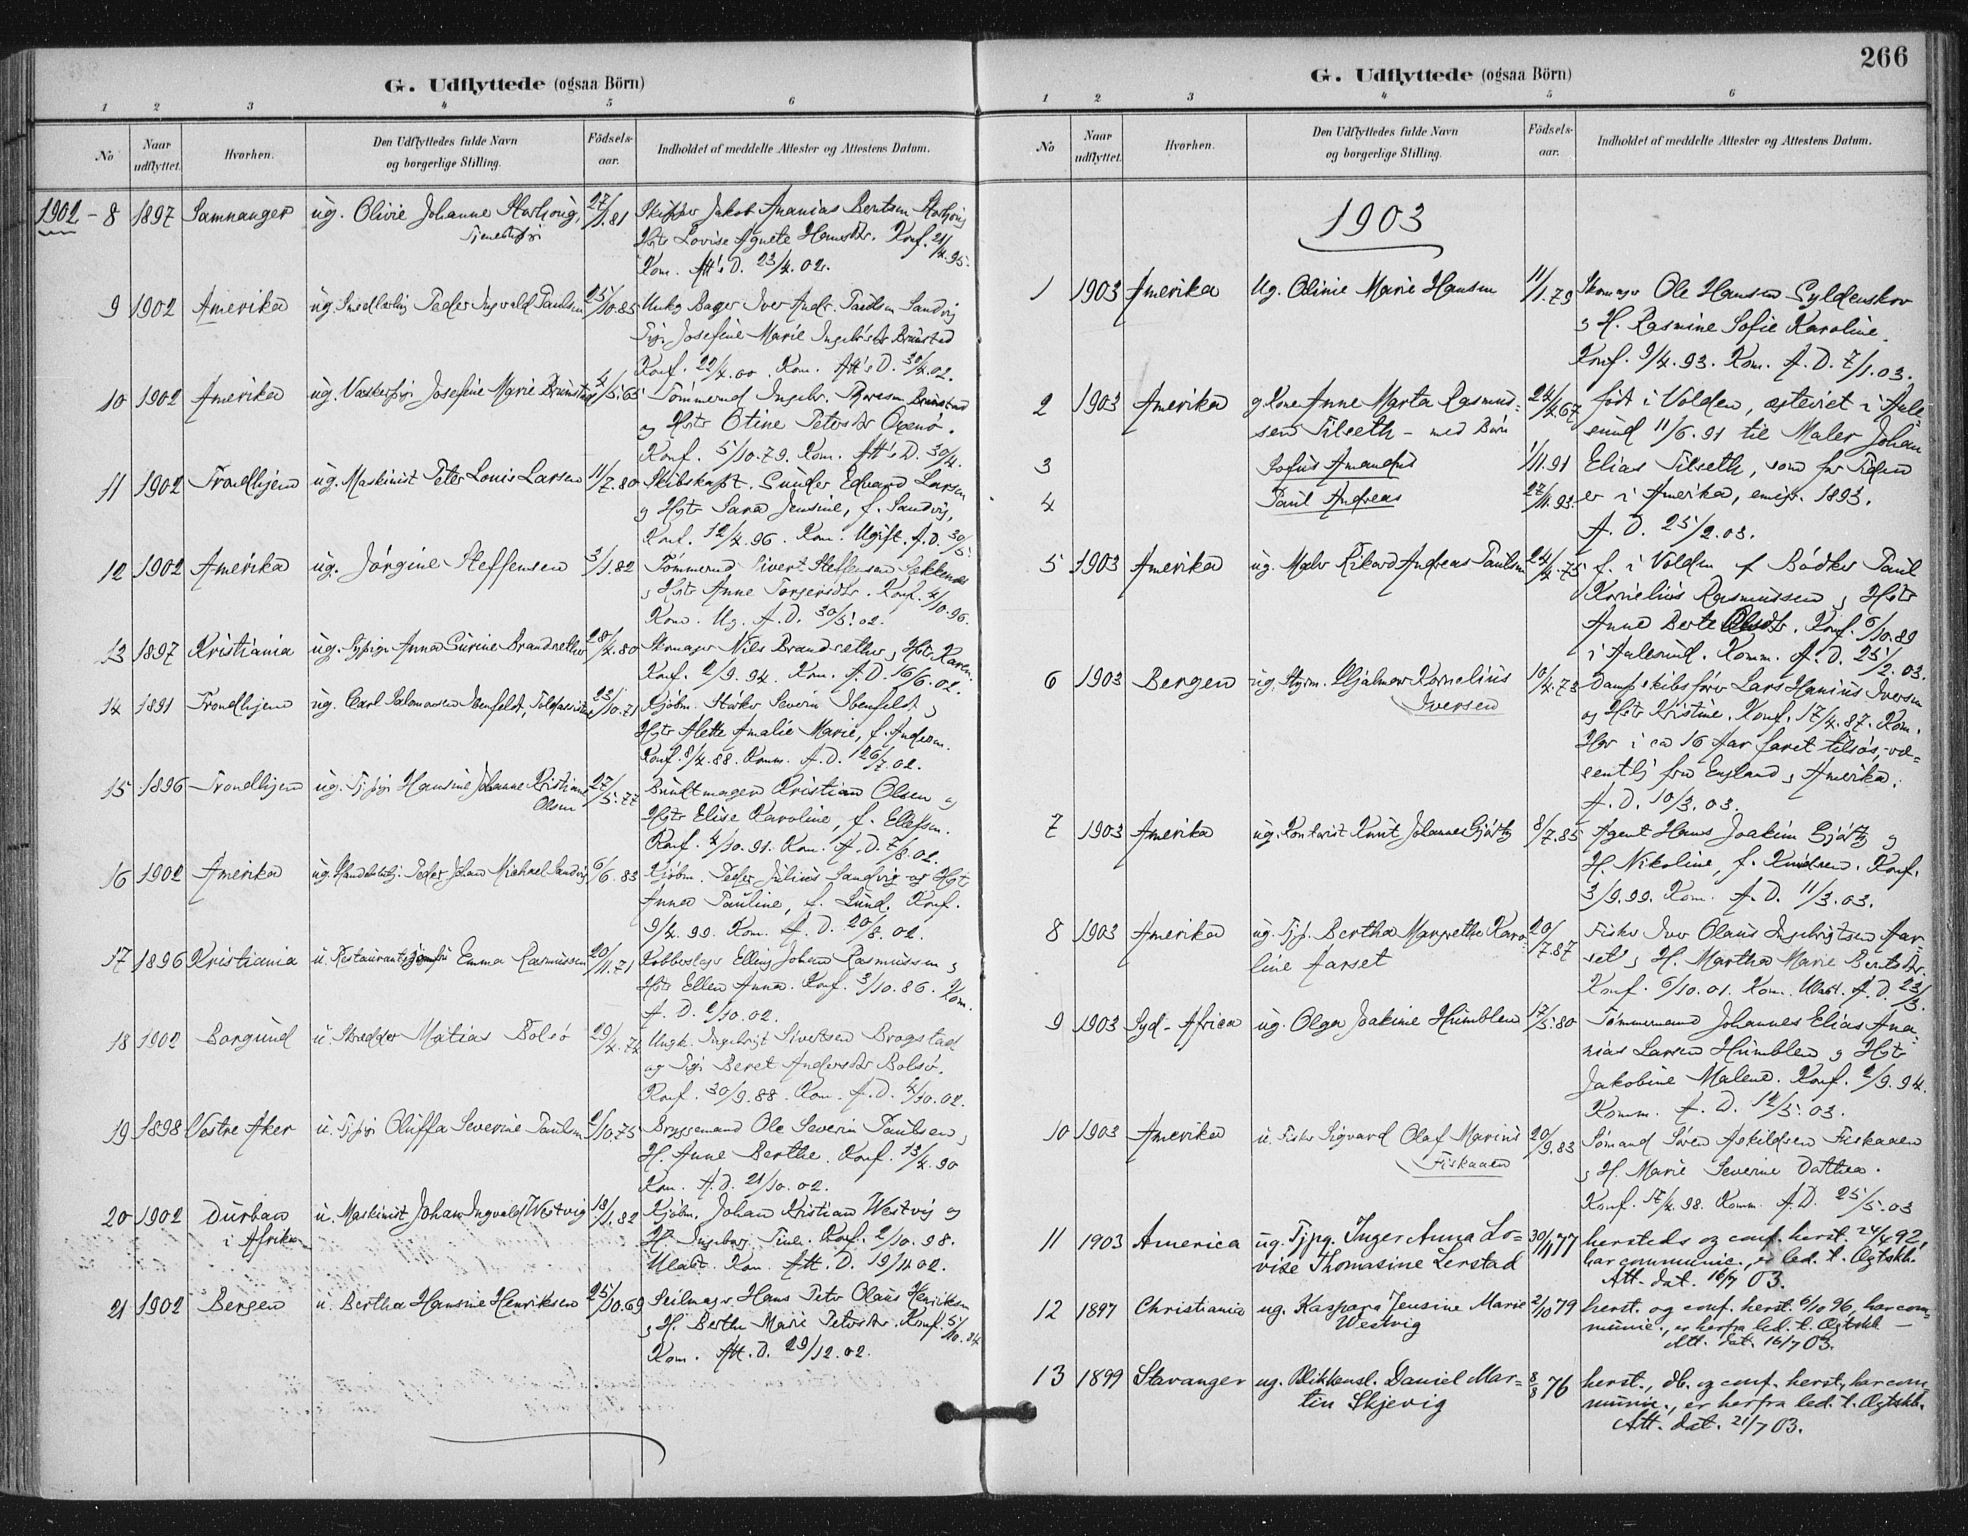 G. Udflyttede (ogsaa Börn)
1 2 3 4 5 6
No
Naar udflyttet.
Hvorhen.
Den Udflyttedes fulde Navn og borgerlige Stilling.
Födsels-aar.
Indholdet af meddelte Attester og Attestens Datum.
1902 - 8 1897 Samnanger ug. Olivie Johanne 27/1.81 Skipper Jakob Ananias Berntsen
Hstr Lovise Agnete Konf. 21/4.95.
Kom. Att's D. 23/4.02.
9 1902 Amerika ug. Peder Ingvald Paulsen 25/10.85 Ungk. Bager Iver Andr. Paulsen Sandvig
Josefine Marie Brunstad
Konf. 22/4.00. Kom. Att's D. 30/4.02.
10 1902 Amerika ug. Josefine Marie Brunstad 4/5.65 Tömmermd Ingebr. Brunstad
og Hstr Otine Petersdtr
Konf. 5/10.79. Kom. Att's D. 30/4.
11 1902 Trondhjem ug. Maskinist Peter Louis Larsen 11/7.80 Skibskapt. Sunder Edvard Larsen
og Hstr Sara Jensine, f. Sandvig,
Konf. 12/4.96. Kom. Ugift. A.D. 30/5.
12 1902 Amerika ug. Jörgine Steffensen 3/1.82 Tömmermd Sivert Steffensen
Hstr Anne Konf. 4/10.96.
Kom. Ug. A.D. 30/5.02.
13 1897 Kristiania ug. Sypige Anna Surine Brandsether 28/4.80 Skomager Nils Brandsether, Hstr Karen.
Konf. 2/9.94. Kom. A.D. 16/6.02.
14 1891 Trondhjem ug. Carl Salomonsen Ibenfeldt, 23/10.71 Kjöbm. Severin Ibenfeldt,
Hstr Alette Amalie Marie, f. Andersen.
Konf. 8/4.88. Komm. A.D. 26/7.02.
15 1896 Trondhjem ug. Hansine Johanne Kristiane 27/5.77 Bundtmager Kristian Olsen og
Olsen Hstr Elise Karoline, f. Ellefsen.
Konf. 4/10.91. Kom. A.D. 7/8.02.
16 1902 Amerika ug. Peder Johan Michael Sandvig 6/6.83 Kjöbm. Peder Julius Sandvig og Hstr
Anna Pauline, f. Lund. Konf.
9/4.99. Kom. A.D. 20/8.02.
17 1896 Kristiania u. Restaurantsjomfru Emma Rasmussen 20/11.71 Kobberslager Elling Johan Rasmussen,
Hstr Ellen Anna. Konf. 3/10.86. Kom.
A.D. 2/10.02.
18 1902 Borgund u. Skredder Matias Bolsö 29/4.72 Ungk. Ingebrigt Sivertsen Brogstad
og Pige Beret Andersdtr Bolsö.
Konf. 30/9.88. Kom. A.D. 4/10.02.
19 1898 Vestre Aker u. Oluffa Severine Paulsen 2/10.75 Bryggemand Ole Severin Paulsen,
H. Anne Berthe. Konf. 13/4.90
Kom. A.D. 21/10.02.
20 1902 Durban u. Maskinist Johan Ingvald Westvig 18/1.82 Kjöbm. Johan Kristian Westvig og
i Afrika H. Ingeborg Konf. 2/10.98.
Kom. Att. D. 19/11 02.
21 1902 Bergen u. Bertha Hansine Henriksen 25/10.69 Seilmager Hans Peter Olaus Henriksen
, H. Berthe Marie Petersdtr. Konf. 5/10.84
Kom. Att. D. 29/12.02.
266
G. Udflyttede (ogsaa Börn)
1 2 3 4 5 6
No
Naar udflyttet.
Hvorhen.
Den Udflyttedes fulde Navn og borgerlige Stilling.
Födsels-aar.
Indholdet af meddelte Attester og Attestens Datum.
1903
1 1903 Amerika Ug. Olinie Marie Hansen 11/11.79 Skomager Ole Hansen Gyldenskov
og H. Rasmine Sofie Karoline.
Konf. 9/4.93. Kom. A.D. 7/1.03.
2 1903 Amerika g Kone Anne Marta Rasmus- 24/4.67 født i Volden, egteviet i Aale
sen Tilseth - med Börn sund 11/6.91 til Maler Johan
3 Jofus Amandus 1/11.91 Elias Tilseth, som for Tiden
4 Paul Andreas 27/11.93. er i Amerika, emigr. 1893.
A.D. 25/2.03.
5 1903 Amerika ug. Maler Rikard Andreas Paulsen 24/4.75 f. i Volden af Bödker Paul
Kornelius Rasmussen, Hstr
Anne Berte Olsdtr. Konf. 6/10.89
i Aalesund. Komm. A.D. 25/2.03.
6 1903 Bergen ug. Styrm. Hjalmar Kornelius 10/4.73 Dampskibsförer Lars Hanius Iversen
Iversen og Hstr Kristine. Konf. 17/4.87. Kom.
Har i ca 16 Aar faret tilsøs, væ-
sentlig fra England og Amerika.
A.D. 10/3.03.
7 1903 Amerika ug. Kontorist Knut Johannes Gjörtz 8/7.85 Agent Hans Joakim Gjörtz og
H. Nikoline, f. Knudsen. Konf.
3/9.99. Kom. A.D. 11/3.03.
8 1903 Amerika ug. Tjp. Bertha Margrethe Karo 20/7.87 Fisker Iver Olaus Ingebrigtsen Aar
line Aarset set, H. Martha Marie Berntsdtr.
Konf. 6/10.01. Kom. A.D. 23/3.
9 1903 Syd-Africa ug. Olga Joakine Humblen 17/5.80 Tömmermand Johannes Elias Ana
nias Larsen Humblen og Hstr
Jakobine Malene. Konf. 2/9.94.
Komm. A.D. 12/5.03.
10 1903 Amerika u. Fisker Sigvard Olaf Marius 20/9.83 Sömand Sören Askildsen Fiskaaen
Fiskaaen og H. Marie Severine Dathea.
Konf. 17/4.98. Komm. A.D. 25/5.03
11 1903 America ug. Tjpg. Inger Anna Lo- 30/11 77 hersteds og conf. herst. 24/4 92,
vise Thomasine Lerstad har communic., er led. t. Ægtskb.
Att. dat. 16/7 03.
12 1897 Christiania ug. Kaspara Jensine Marie 2/10 79 herst. og conf. herst. 6/10 96, har com-
Westvig munic., er herfra led. t. Ægtskb. —
Att. dat. 16/7 03.
13 1899 Stavanger ug. Blikkensl. Daniel Mar- 8/8 76 herst., db. og conf. herst., har com-
tin Skjevig munic., er herfra led. t. Ægtskb.
Att. dat. 21/7 03.